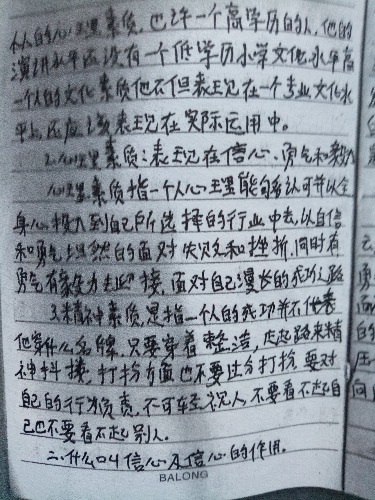 人的心理素质，也许一个高学历的人，他的
演讲水平还没有一个低学历小学文化水平高
一个人的文化素质他不但表现在一个专业文化水
平上还应该表现在实际运用中。
2.心理素质：表现在信心、勇气和毅力
心理素质指一个人心里能够认可并以全
身心投入到自己所选择的行业中去，以自信
和勇气坦然的面对失败和挫折，同时有
勇气有能力去迎接，面对自己漫长的成功之路
3.精神素质，是指一个人的成功并不代表
他穿什么名牌，只要穿着整洁，走起路来精
神抖擞，打扮方面也不要过分打扮，要对
自己的行为负责，不可轻视人，不要看不起自
己也不要看不起别人。
二.什么叫信心及信心的作用。
BALONG